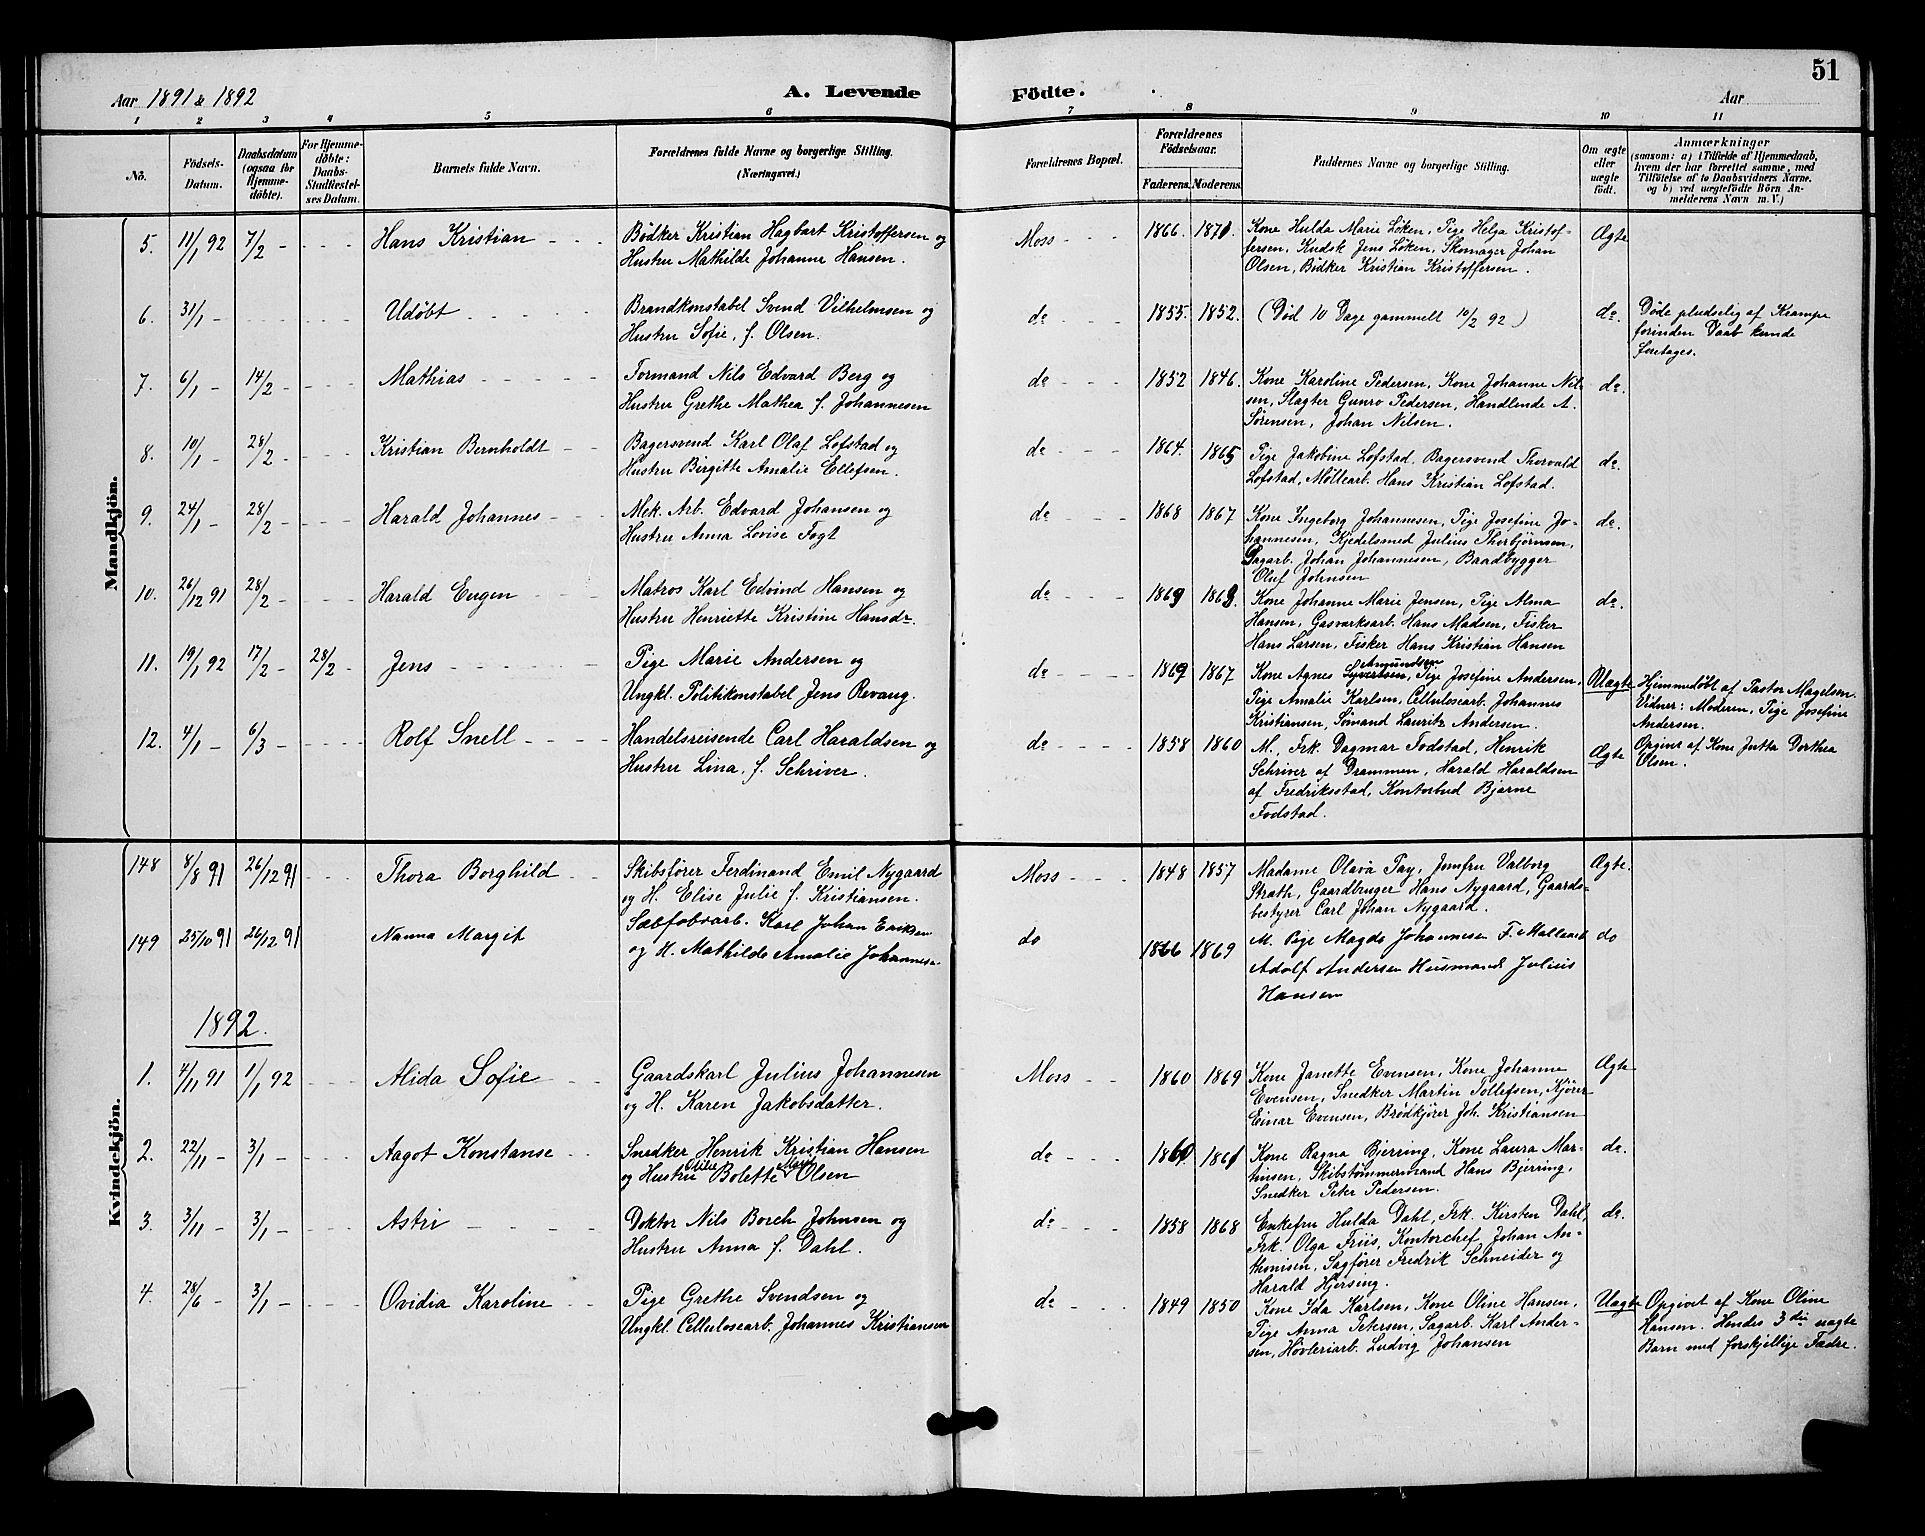 51
Aar 1891 & 1892
A. Levende
Födte.
Aar
1 2 3 4 5 6 7 8 9 10 11
No.
Födsels-Datum.
Daabsdatum (ogsaa for Hjemme-döbte).
For Hjemme-döbte: Daabs-Stadfæstel-ses Datum.
Barnets fulde Navn.
Forældrenes fulde Navne og borgerlige Stilling. (Næringsvei.)
Forældrenes Bopæl.
Forældrenes Födselsaar.
Faderens. Moderens.
Faddernes Navne og borgerlige Stilling.
Om ægte eller uægte födt.
Anmærkninger
(saasom: a) i Tilfælde af Hjemmedaab, hvem der har forrettet samme, med Tilföielse af to Daabsvidners Navne. og b) ved uægtefödte Börn An-melderens Navn m. V.)
Mandkjön.
5. 11/1 92 7/2 - Hans Kristian
Bödker Kristian Hagbart Kristoffersen og
Hustru Mathilde Johanne Hansen.
Moss 1866. 1871.
Kone Hulda Marie Löken, Pige Helga Kristof-
fersen, Kudsk Jens Löken, Skomager Johan
Olsen, Bödker Kristian Kristoffersen.
Ægte
6. 31/1 - Udöbt
Brandkonstabel Svend Vilhelmsen og
Hustru Sofie, f. Olsen.
do 1855. 1852.
(Död 10 Dage gammelt 10/2 92)
do.
Døde pludselig af Krampe
forinden Daab kunde
foretages.
7. 6/1 - 14/2 - Mathias
Formand Nils Edvard Berg og
Hustru Grethe Mathea f. Johannesen
do 1852 1846.
Kone Karoline Pedersen, Kone Johanne Nil-
sen, Slagter Gunro Pedersen, Handlende A.
Sørensen, Johan Nilsen.
do.
8. 10/1 - 28/2 - Kristian Bernholdt
Bagersvend Karl Olaf Lofstad og
Hustru Birgitte Amalie Ellefsen.
do 1864. 1865
Pige Jakobine Lofstad. Bagersvend Thorvald
Lofstad, Møllearb. Hans Kristian Lofstad.
do.
9. 24/1 - 28/2 - Harald Johannes
Mek. Arb. Edvard Johansen og
Hustru Anna Lovise Fogt
do 1868 1867
Kone Ingeborg Johannesen, Pige Josefine Jo-
hannesen, Kjedelsmed Julius Thorbjørnsen,
Sagarb. Johan Johannesen, Baadbygger
Oluf Johnsen
do.
10. 26/12 91 28/2 - Harald Eugen
Matros Karl Edvind Hansen og
Hustru Henriette Kristine Hansdr.
do 1869 1868.
Kone Johanne Marie Jensen, Pige Alma
Hansen, Gasværksarb. Hans Madsen, Fisker
Hans Larsen, Fisker Hans Kristian Hansen
do.
11. 19/1 92 17/2 - 28/2 Jens
Pige Marie Andersen og
Ungkl. Politikonstabel Jens Revaug.
do 1869 1867
Amundsen
Kone Agnes Syvertsen, Pige Josefine Andersen,
Pige Amalie Karlsen, Cellulosearb. Johannes
Kristiansen, Sømand Lauritz Andersen.
Uægte
Hjemmedöbt af Pastor Magelsen.
Vidner: Moderen, Pige Josefine
Andersen.
Opgivet af Kone Jutta Dorthea
Olsen.
12. 4/1 - 6/3 - Rolf Snell
Handelsreisende Carl Haraldsen og
Hustru Lina, f. Schriver.
do 1858 1860
M., Frk. Dagmar Fodstad, Henrik
Schriver af Drammen, Harald Haraldsen
af Fredriksstad, Kontorbud Bjarne
Fodstad.
Ægte
Kvindekjön.
148 8/8 91 26/12 91 Thora Borghild
Skibsfører Ferdinand Emil Nygaard
og H. Elise Julie f. Kristiansen.
Moss 1848 1857
Madame Olava Pay, Jomfru Valborg
Strøth, Gaardbruger Hans Nygaard, Gaards-
bestyrer Carl Johan Nygaard.
Ægte.
149 25/10 91 26/12 91 Nanna Margit
Karl Johan Eriksen
og H. Mathilde Amalie Johannesen
do 1866 1869
M. Pige Magda Johannesen
Adolf Andersen Husmand Julius
Hansen
do
1892.
1. 4/11 91 1/1 92 Alida Sofie
Gaardskarl Julius Johannesen
og H. Karen Jakobsdatter.
Moss 1860 1869
Kone Janette Evensen, Kone Johanne
Evensen, Snedker Martin Tollefsen, Kjörer
Einar Evensen, Brødkjörer Joh. Kristiansen
Ægte
2. 22/11 - 3/1 - Aagot Konstanse
Snedker Henrik Kristian Hansen
og Hustru Bolette Olsen
do 1860. 1861
Kone Ragna Bjerring, Kone Laura Mar-
tinsen, Skibstømmermand Hans Bjerring,
Snedker Peter Pedersen.
do.
3. 3/11 - 3/1 - Astri
Doktor Nils Borch Johnsen og
Hustru Anna f. Dahl.
do 1858 1868
Enkefru Hulda Dahl, Frk. Kirsten Dahl,
Frk. Olga Friis, Kontorchef Johan An-
thonisen, Sagfører Fredrik Schneider og
Harald Hjersing.
do.
4. 28/6 - 3/1 - Ovidia Karoline
Pige Grethe Svendsen og
Ungkl. Cellulosearb. Johannes Kristiansen
do 1849 1850
Kone Ida Karlsen, Kone Oline Hansen,
Pige Anna Petersen, Sagarb. Karl Ander-
sen, Høvleriarb. Ludvig Johansen
Uægte
Opgivet af Kone Oline
Hansen. Hendes 3die uægte
Barn med forskjellige Fædre.